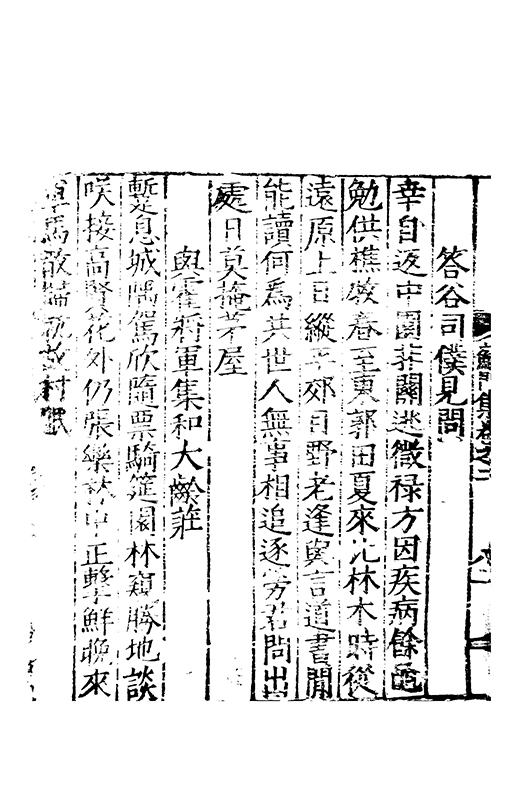 集卷之二
答谷司僕見問
幸自返中園菲闕逃微禄方因疾病餘
勉供樵牧春至東郭田夏來北林木時從
遠原上日縱平郊目野老逢與言道書閒
能讀何為共世人無事相追逐勞君問出
處日莫掩茅屋
與霍將軍集和大齡莊
蹔息城隅駕欣隨票騎筵園林窺勝地談
咲接高賢花外仍張樂林中正擊鮮晚來